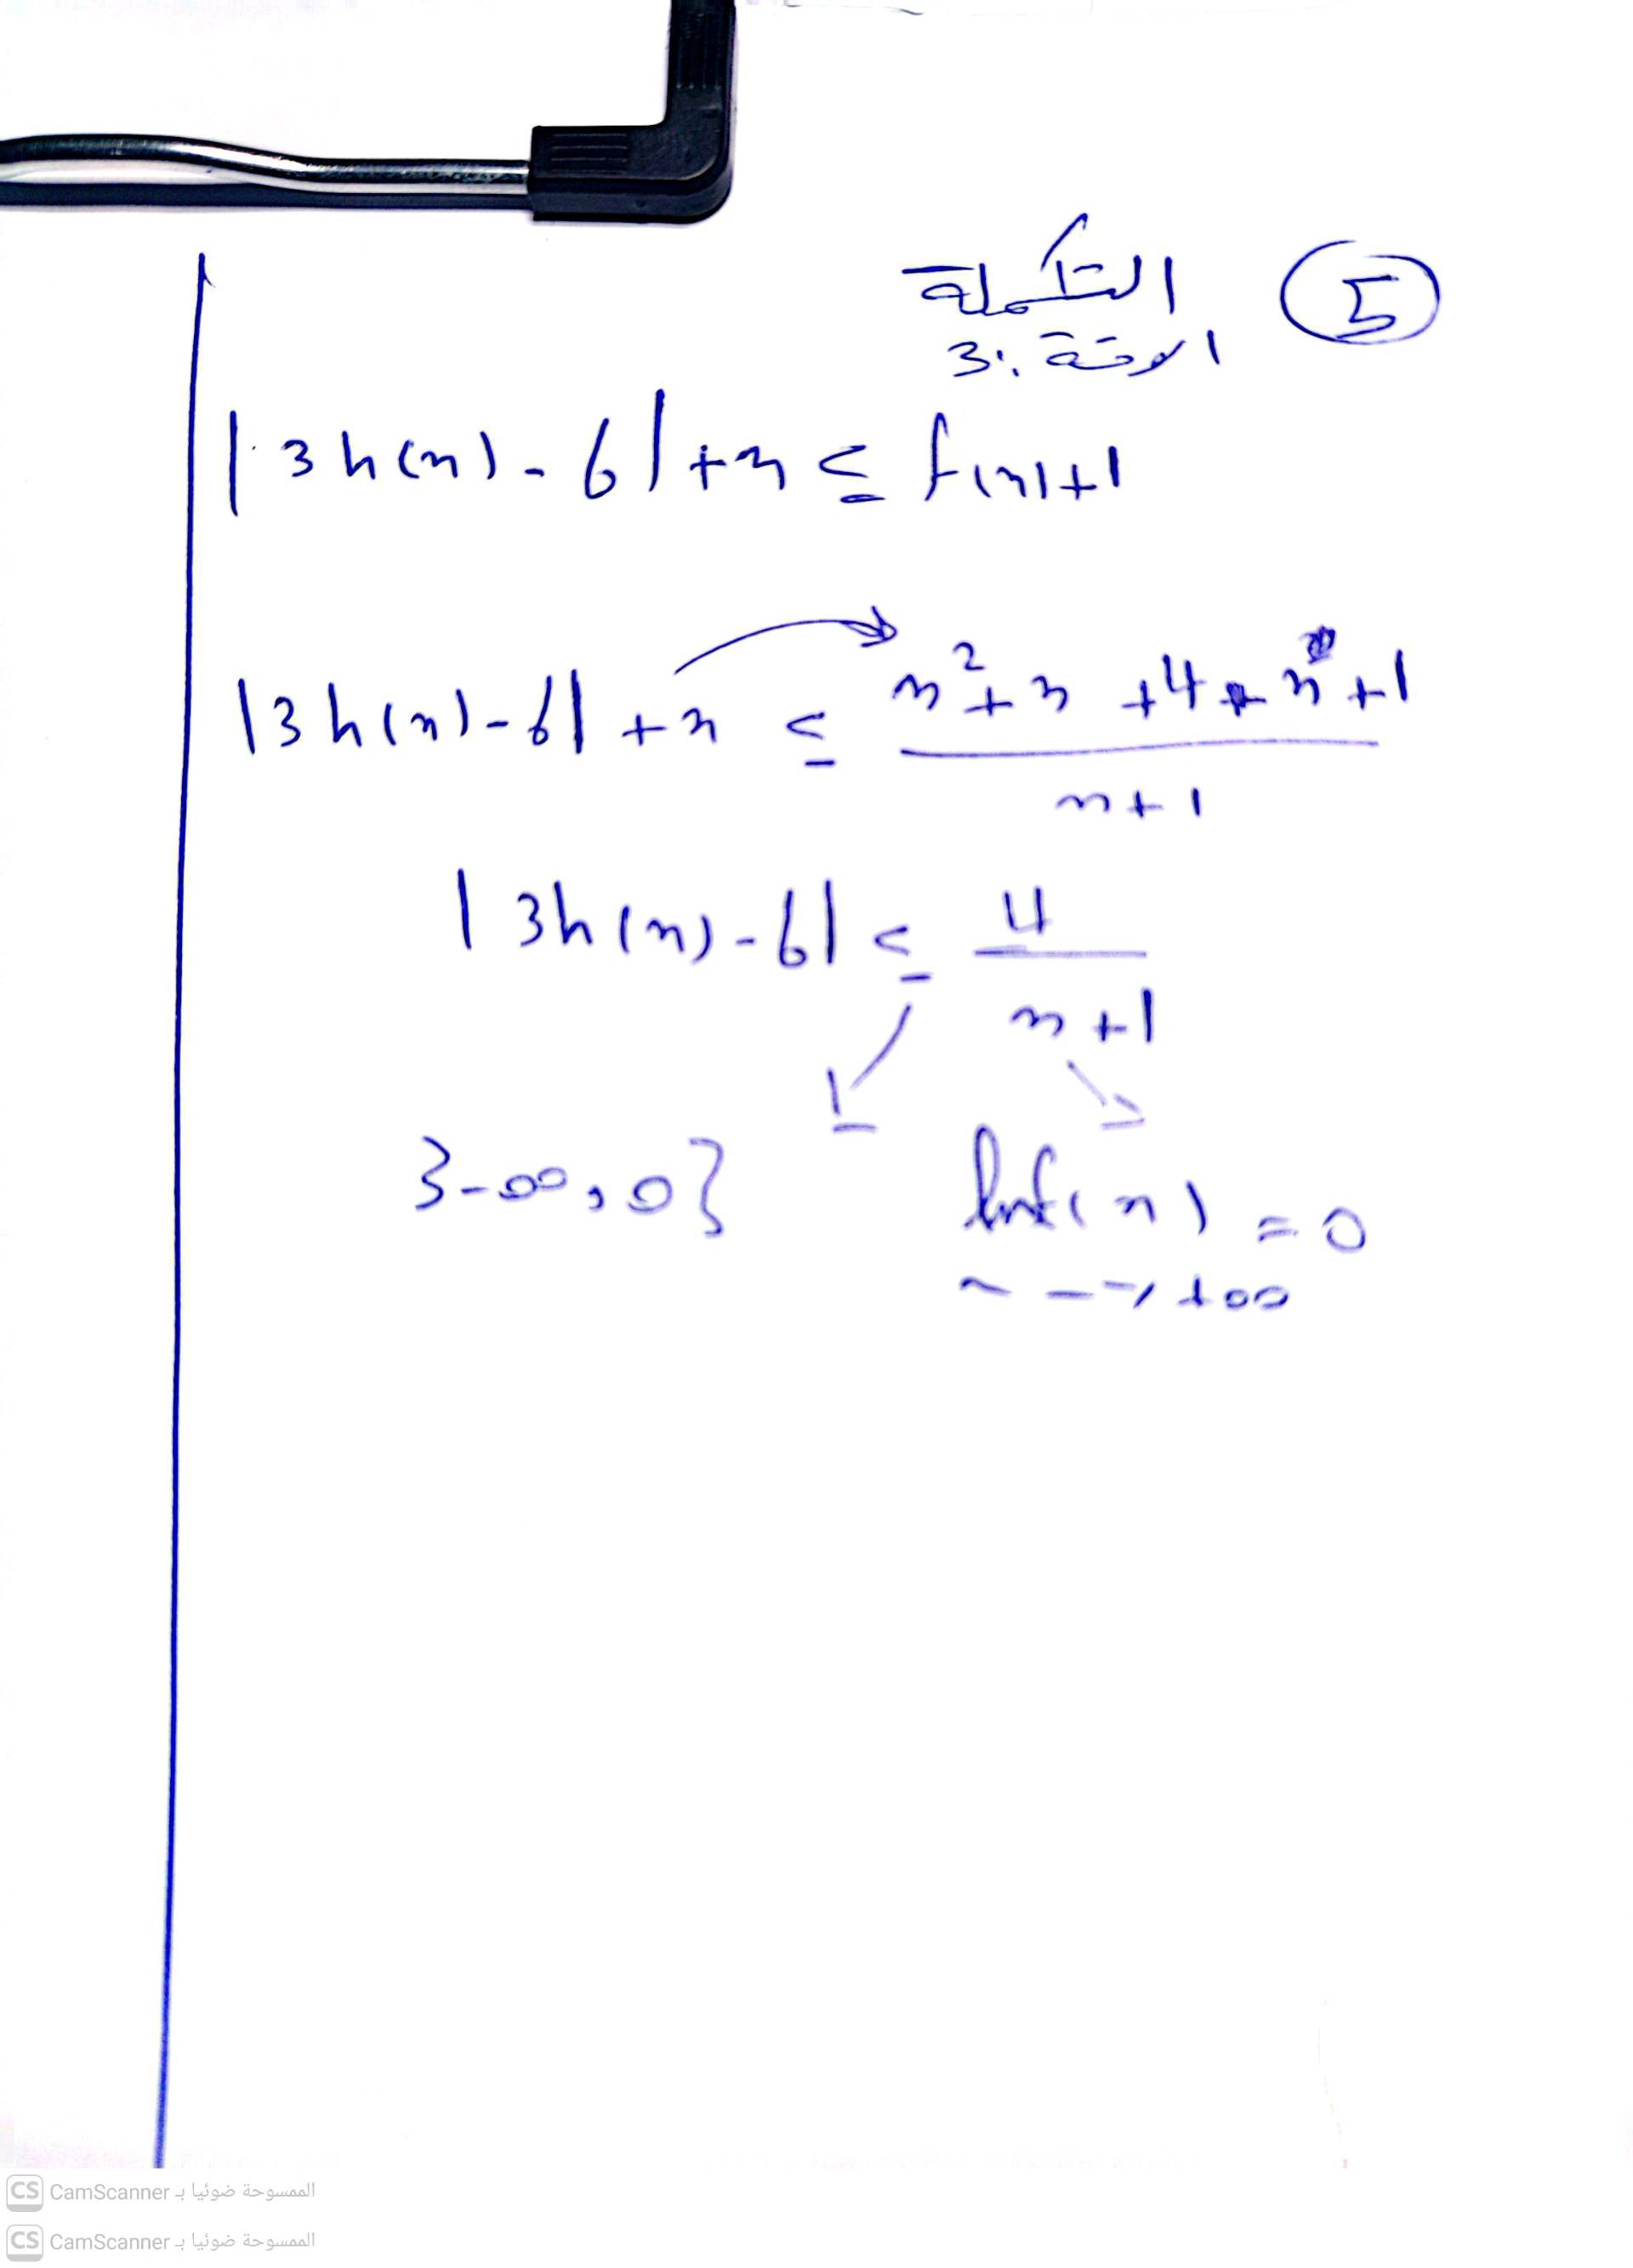 التكملة ⑤
|3h(x)-6|+x ≤ f(x)+1
|3h(x)-6|+x ≤ (x²+x+4+x+1)/(x+1)
|3h(x)-6| ≤ 4/(x+1)
}-∞,0{ lim f(x) = 0
x → +∞
CS CamScanner الممسوحة ضوئيا بـ
CS CamScanner الممسوحة ضوئيا بـ